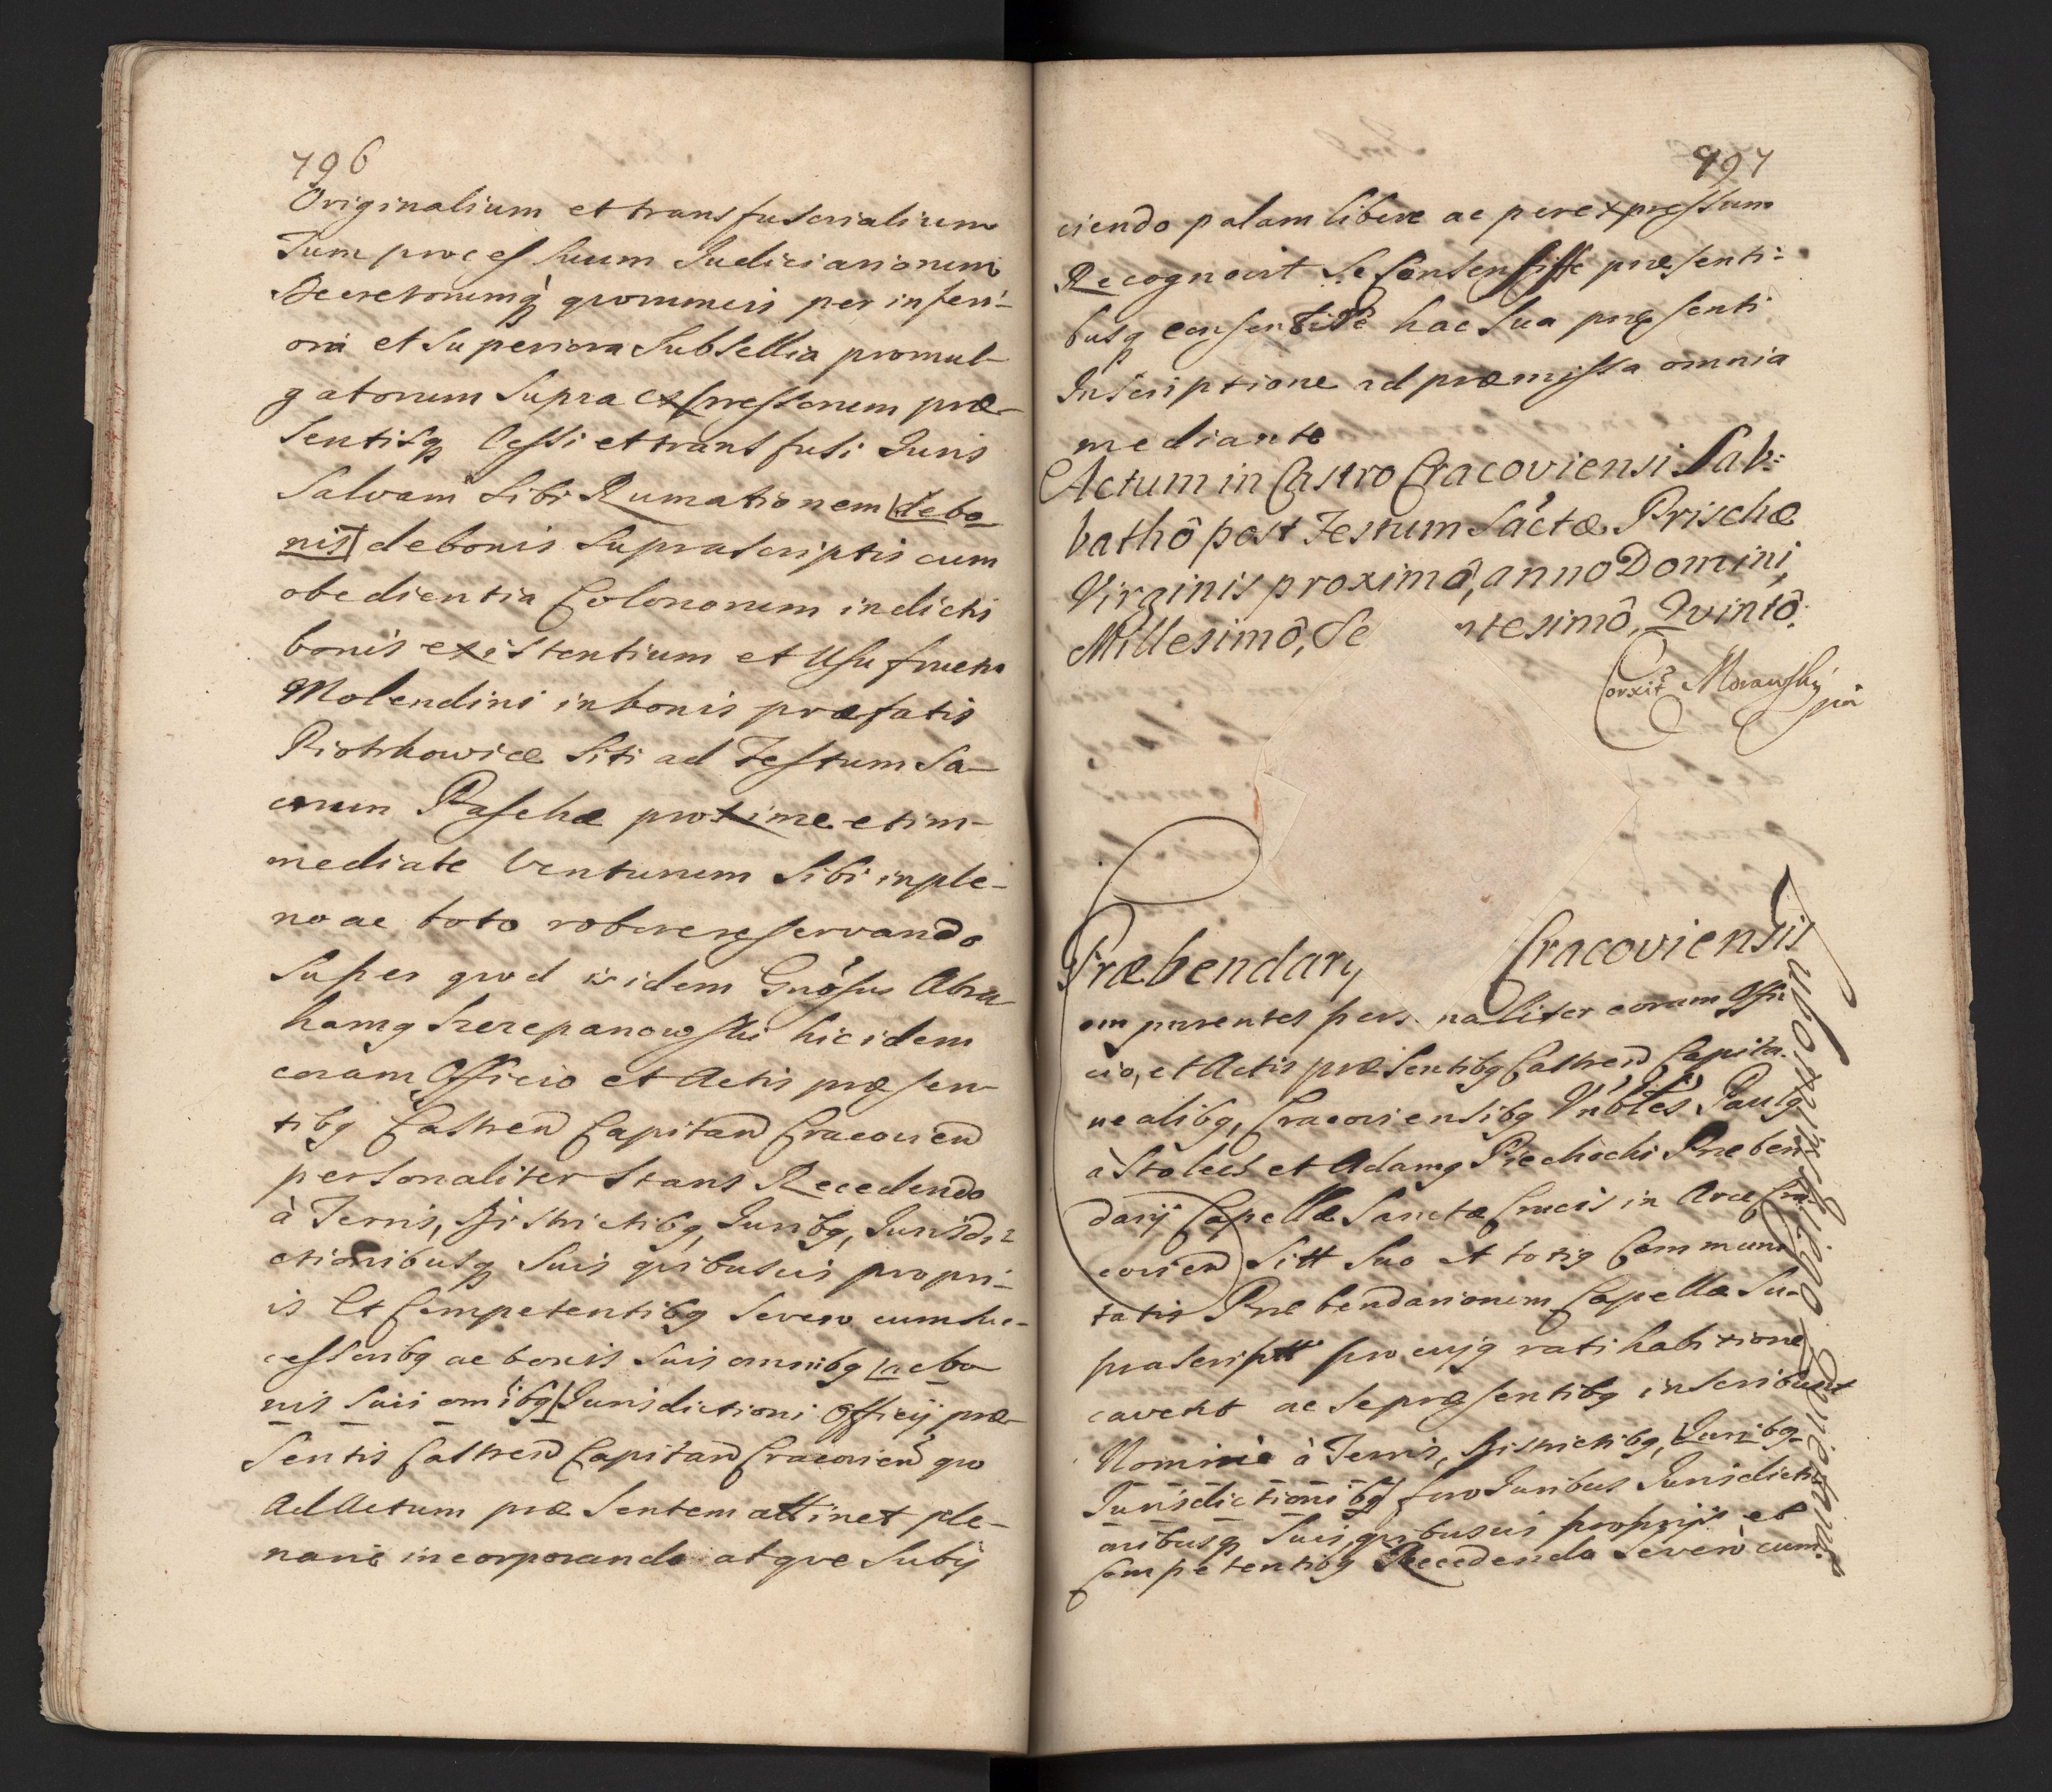 796
Originalium et transfusorialium
Tum processuum Judiciariorum
Decretorumq̀ quorumvis per inferi-
ora et Superiora Subsellia promul-
gatorum Supra expressorum præ-
sentisq Cessi et transfusi Juris
Salvam Sibi Rumationem de bo
nis de bonis Suprascriptis cum
obedientia Colonorum in dictis
bonis existentium et Usufructu
Molendini in bonis præfatis
Piotrkowice Siti ad Festum Sa-
crum Paschæ proxime et im-
mediate Venturum Sibi in ple-
no ac toto robore reservando
Super quod is idem Gnosus Abra
hamq Szczepanowski hic idem
coram Officio et Actis præsen
tibq Castren Capitan Cracovien
personaliter Stans Recedendo
à Terris, Districtibq, Juribq, Jurisdi-
ctionibusq Suis quibusvis propri-
is Et Competentibq Severo cum Suc-
cessoribq ac bonis Suis omnibq ac bo
nis Suis omibq Jurisdictioni Officij præ-
sentis Castren Capitan Cracovien quo
Ad Actum præsentem attinet ple-
narie incorporando atque Subij
797
ciendo palam libere ac per expressum
Recognovit Se Consensisse præsenti-
busq consentire hac Sua præsenti
Inscriptione ad præmissa omnia
mediante
Actum in Castro Cracoviensi Sab-
bathô post Festum Sáctæ Prischæ
Virginis proximô, anno Domini
Millesimô, Se ntesimô, Quintô.
Corxit Morawsky mp
Præbendarij Cracoviensis
om parentes pers naliter coram Offi
cio, et Actis præsentibq Castren Capita-
nealibq, Cracoviensibq Vnbles Paulq
à Stolecs et Adamq Piechocki Præben
darij Capellæ Sanctæ Crucis in Arce Cra
covien Sitt Suo et totiq Communi
tatis Præbendariorum Capellæ Su-
prascriptt pro cujq ratihabitione
cavent ac Se præsentibq inscribunt
Nomine à Terris, Districtibq, Juribq
Jurisdictionibq foro Juribus Jurisdicti
onibusq Suis quibusvis proprijs et
Competentibq Recedendo Severò cum